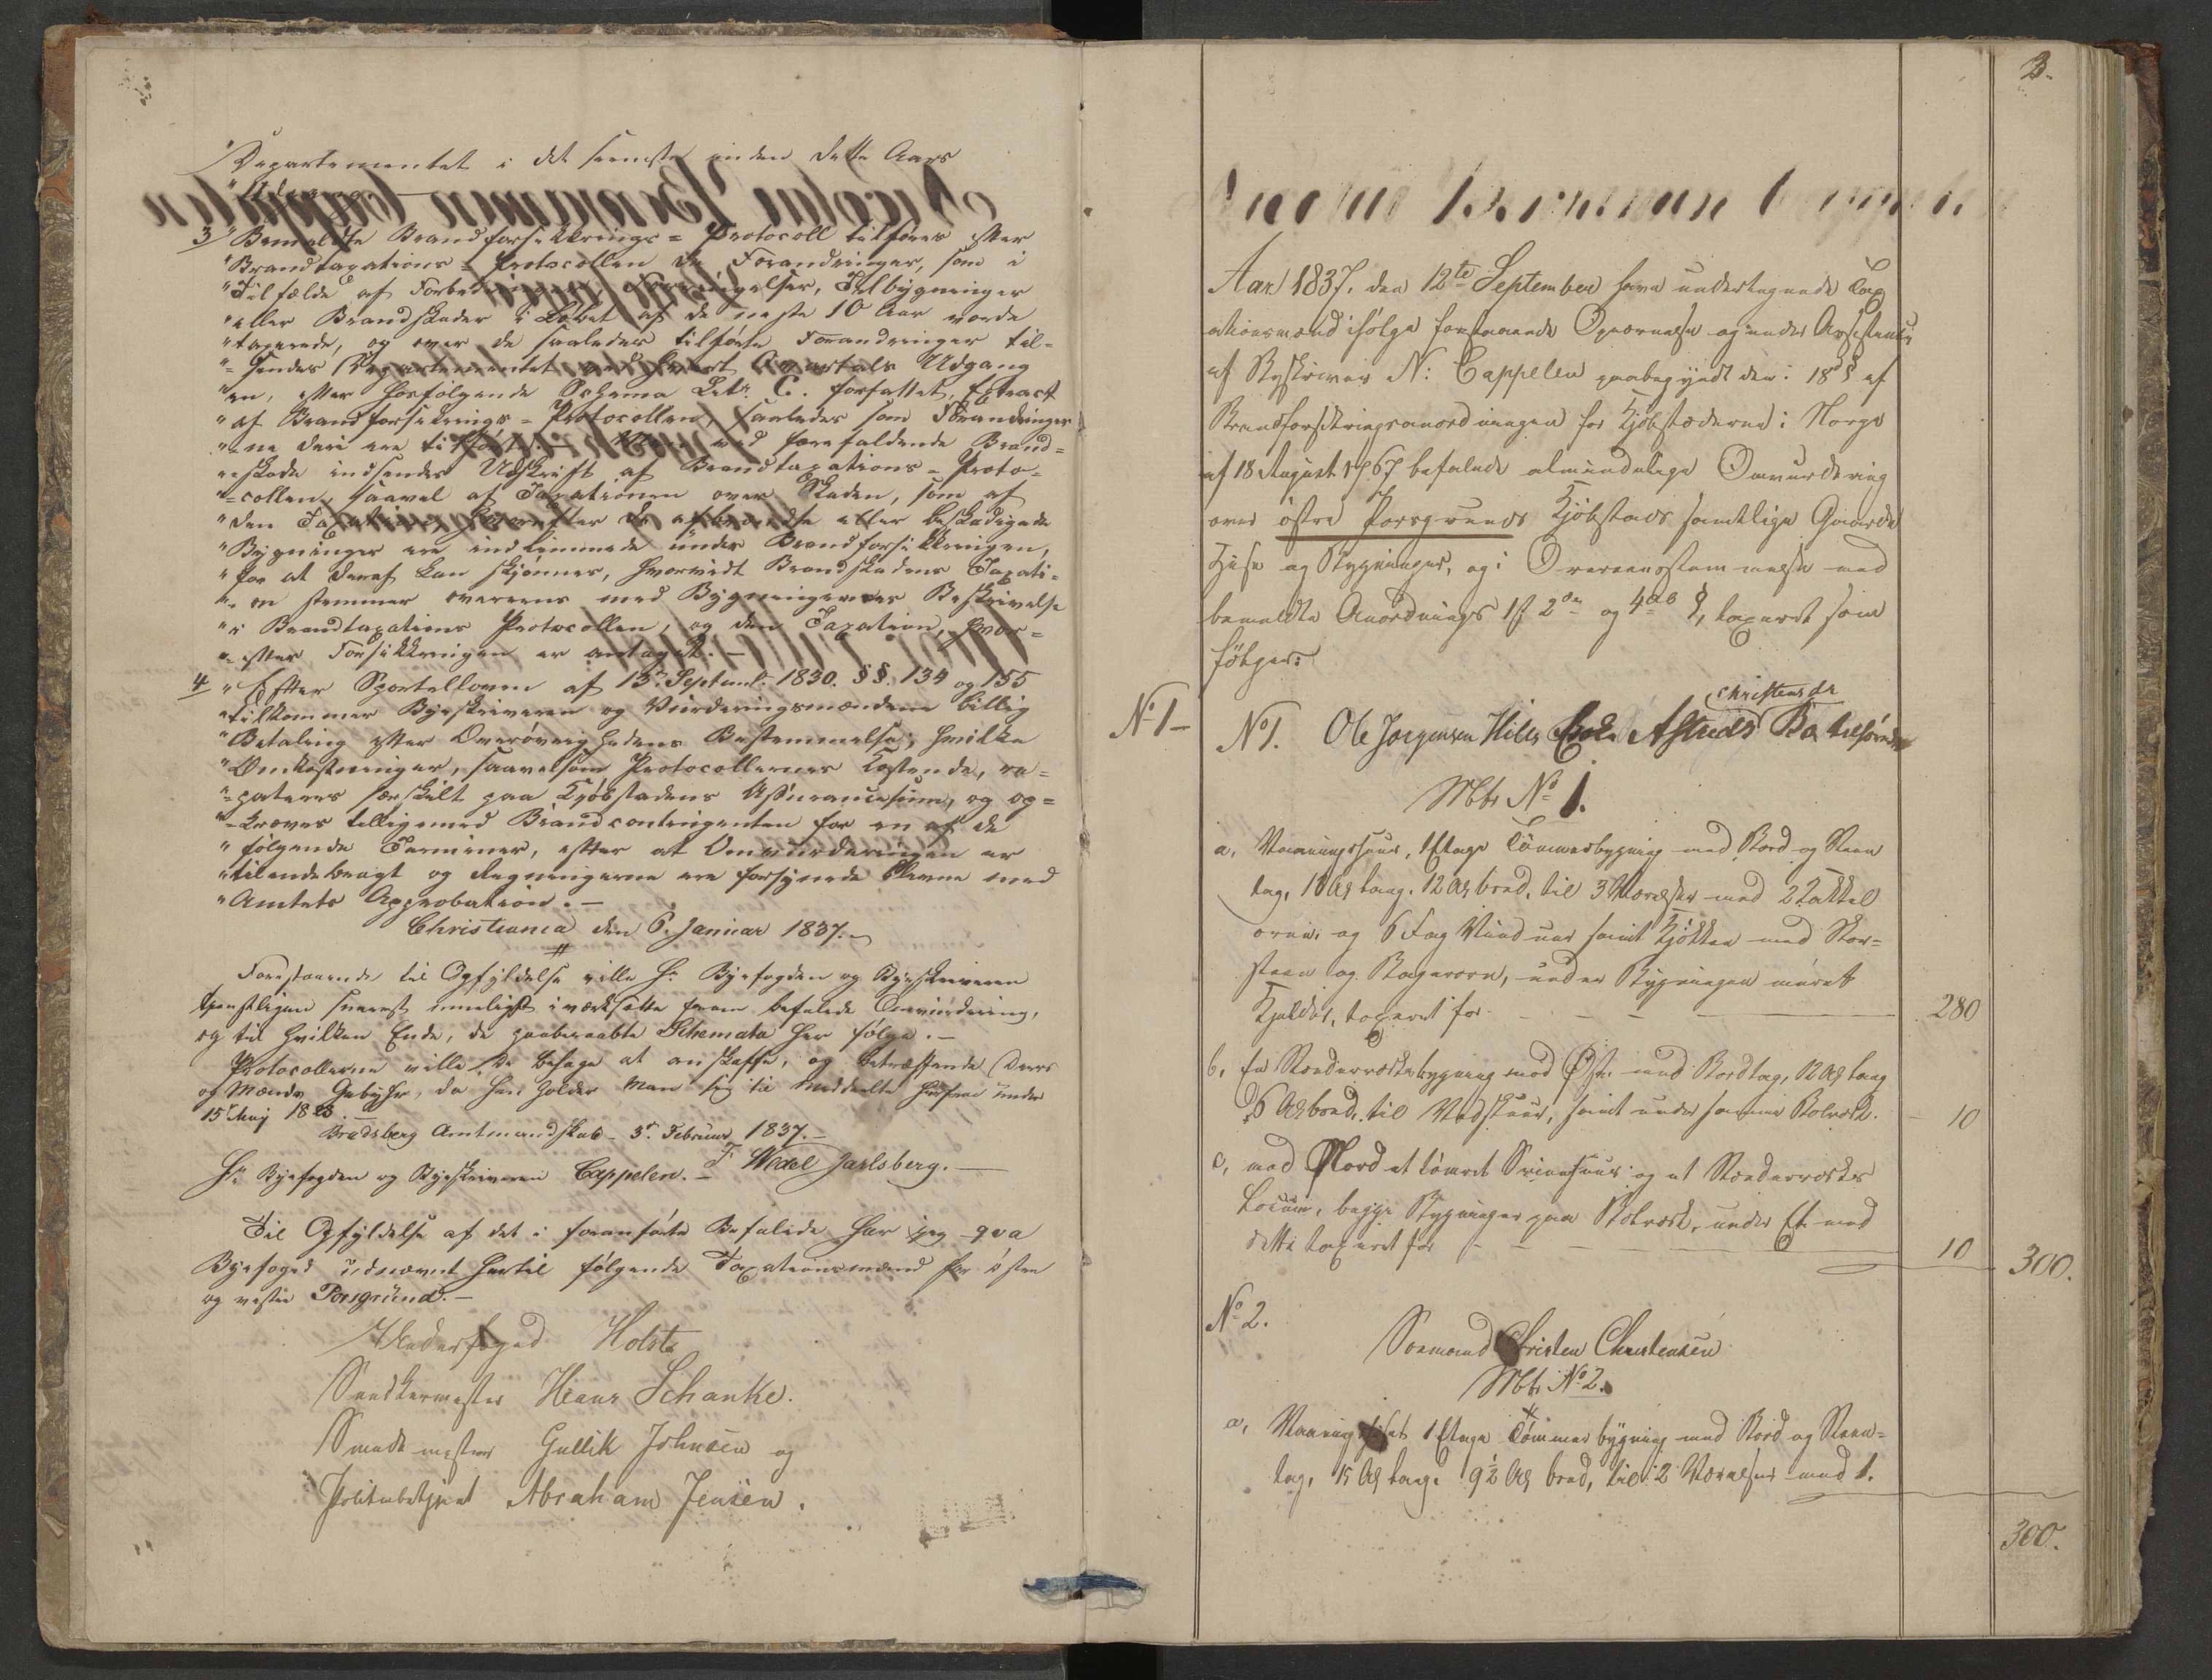 Departementet i det seeneste inden dette Aars
"Udgang.
3 "Bemeldte Brandforsikkrings= Protocoll tilføres efter
"Brandtaxations= Protocollen de Forandringer, som i
"Tilfælde af Forbedringer, Tilbygninger
"eller Brandskader i Løbet af de næste 10 Aar vorde
"taxerede, og over de saaledes tilførte Forandringer til=
"=sendes Departementet ved hvert Qvartals Udgang
"en, efter hosfølgende Schema Litr. C. forfattet, Extract
"af Brandforsikrings= Protocollen, saaledes som Forandringer
"=ne deri ere tilførte. ved forefaldende Brand=
"=skade indsendes Udskrift af Brandtaxations= Proto=
"=collen, saavel af Taxationen over Skaden, som af
"den Taxation, hvorefter de afbrændte eller beskadigede
"Bygninger ere indlemmede under Brandforsikkringen,
"for at deraf kan skjønnes, hvorvidt Brandskadens Taxati=
"=on stemmer overeens med Bygningernes Beskrivelse
"i Brandtaxations Protocollen, og den Taxation, hvor=
"=efter Forsikkringen er antaget.—
4 "Efter Sportelloven af 13de Septemb. 1830. §§. 134 og 155
"tilkommer Byeskriveren og Vurderingsmændene billig
"Betaling efter Overøvrighedens Bestemmelse; hvilke
"Omkostninger, saavelsom Protocollernes Kostende, re=
"=parteres særskilt paa Kjøbstadens Assurancesum, og op=
"=kræves tilligemed Brandcontingenten for en af de
"følgende Terminer, efter at Omvurderingen er
"tilendebragt og Regningerne ere forsynede med
"Amtets Approbation.—
Christiania den 6. Januar 1837.—
Foranstaaende til Opfyldelse ville Hr Byefogden og Byeskriveren
tjenstligen snarest mueligst iværksætte den befalede Omvurdering,
og til hvilken Ende, de paaberaabte Schemata her følge.—
Protocollerne ville De behage at anskaffe, og betræffende Deres
og Mænds Gebyhr, da henholder Man sig til meddeelte under
15 Maj 1828.—
Bradsberg Amtmandskab 3die Februar 1837.—
F Wedel Jarlsberg.—
Hr Byefogden og Byeskriveren Cappelen.—
Til Opfyldelse af det i foranførte Befalede har jeg qva
Byefoged udnævnt hertil følgende Taxationsmænd for østre
og vestre Porsgrund.—
Underfoged Holst
Snedkermester Hans Schanke.
Smedemester Gullik Johnsen og
Politibetjent Abraham Jensen.
3.
Aar 1837. den 12te September have undertegnede Tax
ationsmænd ifølge foranstaaende Opnævnelse og under Assistance
af Byskriver N: Cappelen paabegyndt den i 18de § af
Brandforsikringsanordningen for Kjøbstæderne i Norge
af 18 August 1767 befalede almindelige Omvurdering
over østre Porsgrunds Kjøbstads samtlige Gaarde
Huse og Bygninger, og i Overeensstemmelse med
bemeldte Anordnings 1ste 2den og 4de §, taxeret som
følger:
Christensdr
No 1— No 1. Ole Jørgensen Hilles Enke Astreds Bo tilhørende
Mtr No 1.
a, Vaaningshuus, 1 Etage Tømmerbygning med Bord og Steen
tag, 18 Al lang. 12 Al bred, til 3 Værelser med 2 Kakkel
ovne, og 6 Fag Vinduer samt Kjøkken med Skor=
steen og Bagerovn, under Bygningen muret
Kjelder, taxeret for — — — 280
b, En Stenderværksbygning mod Øst med Bordtag, 12 Al lang
6 Al bred, til Vedskuur, samt under samme Bolværk. — 10
c, mod Nord et tømret Sviinehuus og et Stenderværkes
Locum, begge Bygninger paa Bolværk, under Et med
dette taxeret for — — — 10 300.
No 2.
Søemand Christen Christensen
Mtr No 2.
a, Vaaningshuset 1 Etage Tømmer bygning med Bord og Steen=
tag, 15 Al lang. 9½ Al bred, til 2 Værelser med 1.
300.